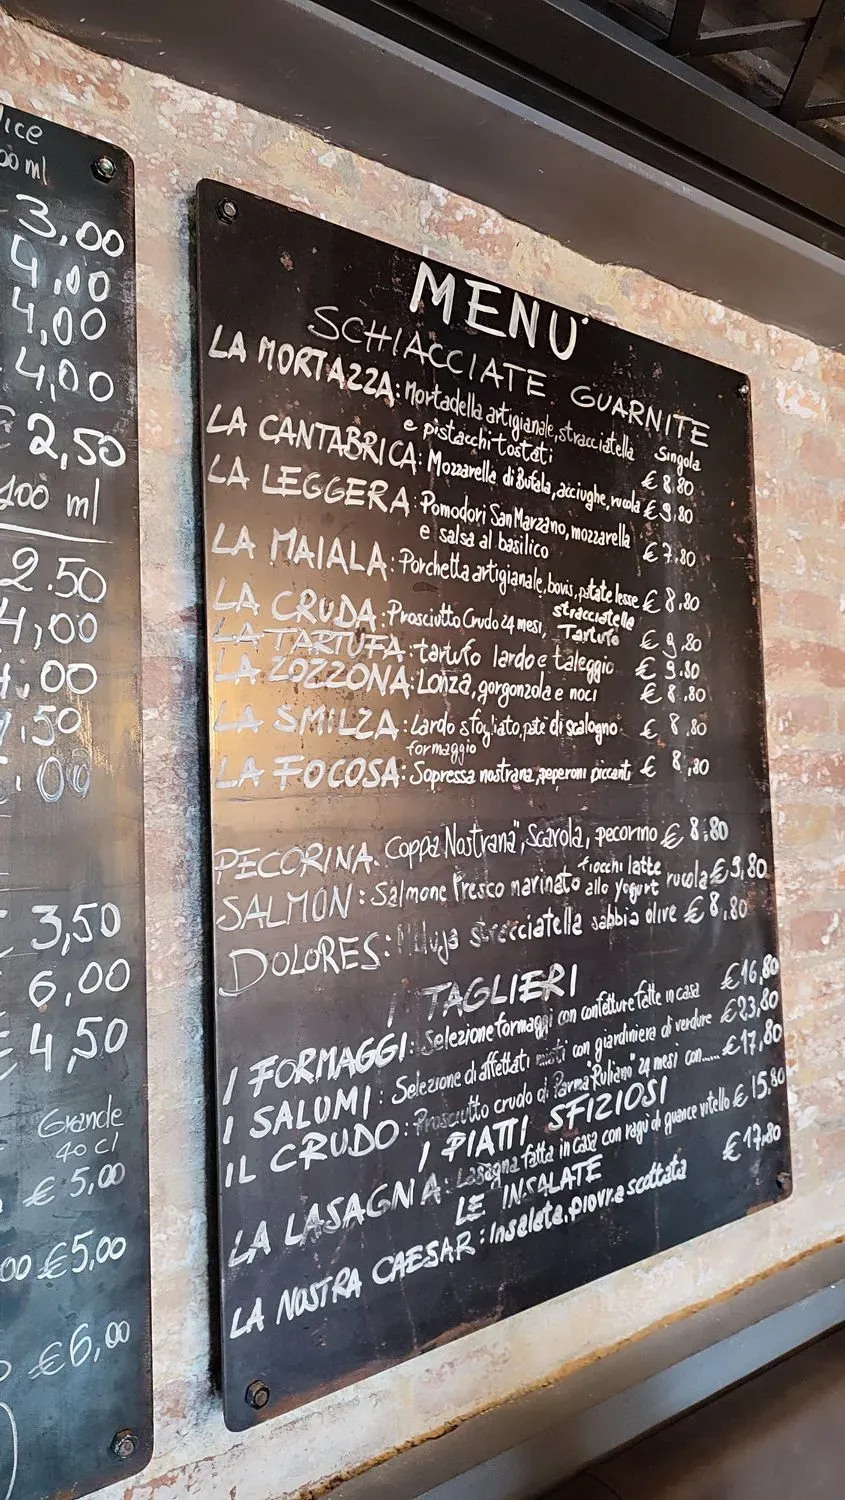 ice
00 ml
3,00
4,00
4,00
4,00
€ 2,50
100 ml
2.50
4,00
4.00
.50
.00
€ 3,50
6,00
€ 4,50
Grande
40 cl
€ 5,00
00 €5,00
€6,00
MENU'
SCHIACCIATE GUARNITE
Singola
LA MORTAZZA: Mortadella artigianale, stracciatella
e pistacchi tostati € 8.80
LA CANTABRICA: Mozzarella di Bufala, acciughe, rucola € 9.80
LA LEGGERA: Pomodori San Marzano, mozzarella
e salsa al basilico € 7.80
LA MAIALA: Porchetta artigianale, bovis, patate lesse € 8.80
stracciatella
LA CRUDA: Prosciutto Crudo 24 mesi, Tartufo € 9.80
LA TARTUFA: tartufo lardo e taleggio € 9.80
LA ZOZZONA: Lonza, gorgonzola e noci € 8.80
LA SMILZA: Lardo sfogliato, paté di scalogno € 8.80
formaggio
LA FOCOSA: Sopressa nostrana, peperoni piccanti € 8,80
PECORINA: Coppa Nostrana", scarola, pecorino € 8.80
fiocchi latte
SALMON: Salmone fresco marinato allo yogurt rucola € 9,80
DOLORES: stracciatella sabbia olive € 8,80
I TAGLIERI
I FORMAGGI: Selezione formaggi con confetture fatte in casa €16,80
I SALUMI: Selezione di affettati misti con giardiniera di verdure €23,80
IL CRUDO: Prosciutto crudo di Parma "Ruliano" 24 mesi con..... €17,80
I PIATTI SFIZIOSI
LA LASAGNA: Lasagna fatta in casa con ragù di guance vitello € 15.80
LE INSALATE
LA NOSTRA CAESAR: Insalata, piovra scottata €17.80